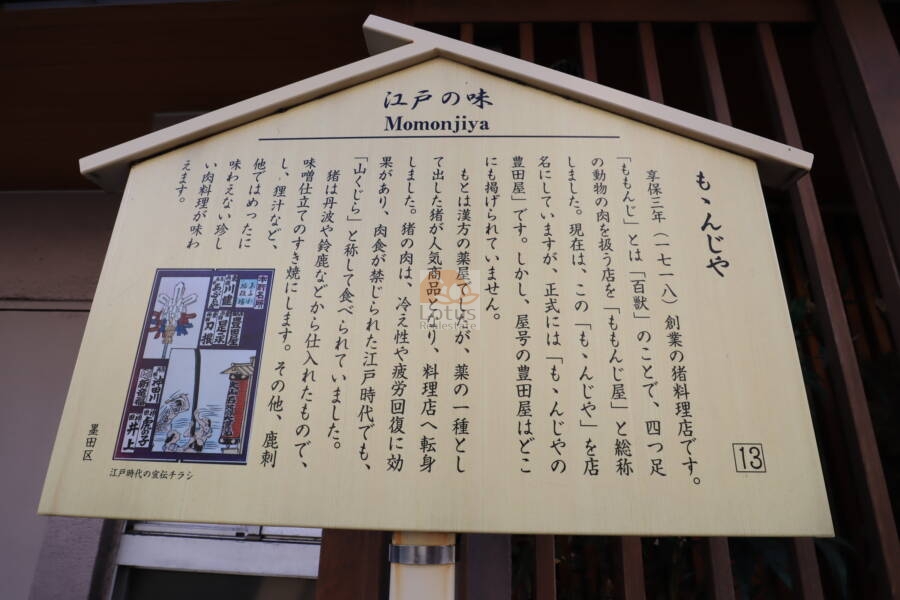 江戸の味
Momonjiya
もゝんじや
享保三年(一七一八)創業の猪料理店です。
「ももんじ」とは「百獣」のことで、四つ足
の動物の肉を扱う店を「ももんじ屋」と総称
しました。現在は、この「もゝんじや」を店
名にしていますが、正式には「もゝんじやの
豊田屋」です。しかし、屋号の豊田屋はどこ
にも掲げられていません。
もとは漢方の薬屋でしたが、薬の一種とし
て出した猪が人気商品となり、料理店へ転身
しました。猪の肉は、冷え性や疲労回復に効
果があり、肉食が禁じられた江戸時代でも、
「山くじら」と称して食べられていました。
猪は丹波や鈴鹿などから仕入れたもので、
味噌仕立てのすき焼にします。その他、鹿刺
し、狸汁など、
他ではめったに
味わえない珍し
い肉料理が味わ
えます。
13
江戸時代の宣伝チラシ
墨田区
Lotus
Realestate